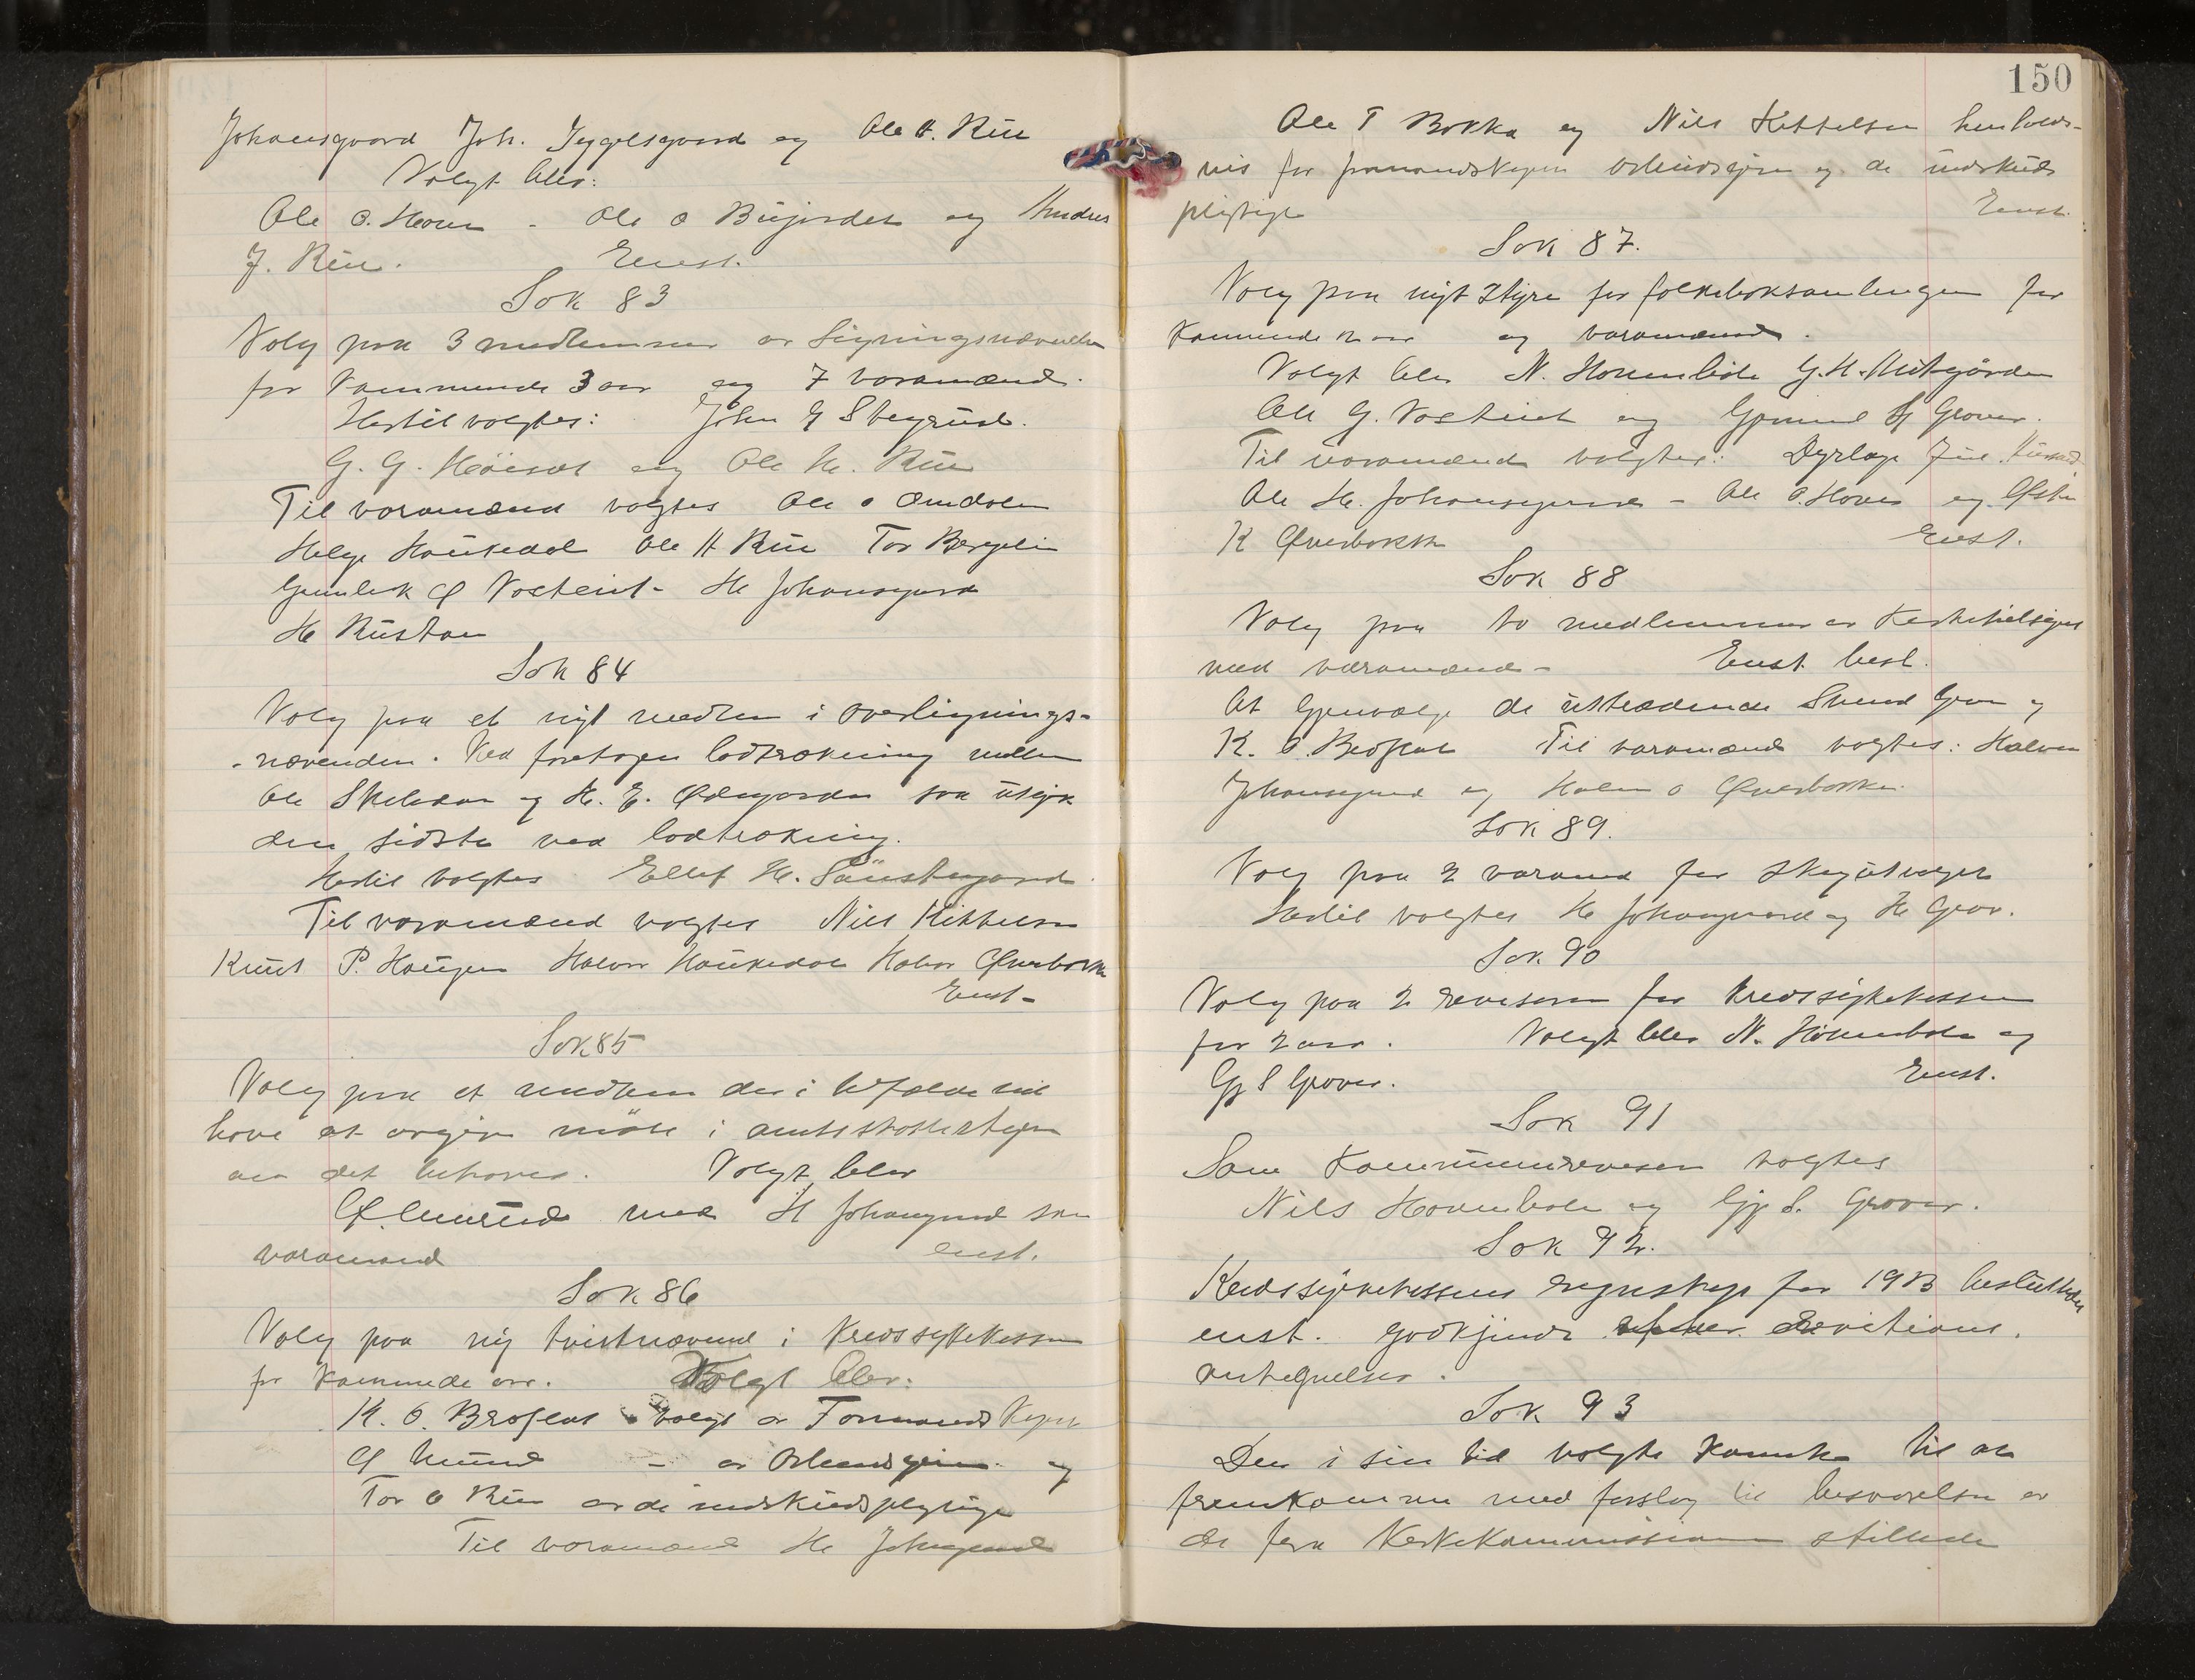 Johansgaard Joh. Iggelsgaard og Ole H. Rue
Valgt blev:
Ole O. Hovin - Ole O Bujordet og Anders
J. Rue. Enst.
Sak 83
Valg paa 3 medlemmer av Ligningsnævnden
for kommende 3 aar og 7 varamænd.
Hertil valgtes: John G Stegrud.
G. G. Höisæt og Ole H. Rue
Til varamænd valgtes Ole O Omdalen
Helge Haukedal Ole H Rue Tor Bergelin
Gunlek Vasteint - H Johansgaard
H Rustan
Sak 84
Valg paa et nyt medlem i overlignings-
nævenden. Ved foretagen lodtrækning mellem
Ole Skeldan og H. E. Ødegarden saa utgik
den sidste ved lodtrækning.
Hertil valgtes Ellef H. Saustegaard.
Til varamænd valgtes Nils Kittelsen
Knut P. Haugen Halvor Haukedal Halvor Øverbøkka
Enst-
Sak 85
Valg paa et medlem der i tilfælde vil
have at avgive möte i amtsskattestyre
om det behøves. Valgt blev
med H Johansgaard som
varamand enst.
Sak 86
Valg paa ny tvistnævnd i Kredssykekassen
for kommende aar. Valgt blev:
K. O. Broflat valgt av Formandskapet
- av Arbeidsgivere og
Tor O Rue av de indskudspligtige
Til varamænd H Johansgaard
150
Ole T Bøkka og Nils Kittelsen henholds-
vis for formandskapet arbeidsgivere og de indskuds
pligtige Enst.
Sak 87.
Valg paa nyt Styre for folkeboksamlingen for
kommende aar og varamænd.
Valgt blev N. Hovenbole G. H. Midtgården
Ole G. Vasteint og Gjermund Grover.
Til varamænd valgtes: Dyrlæge
Ole H. Johansgaard - Ole O. Hovin og Østen
K Øverbøkka Enst.
Sak 88
Valg paa to medlemmer av Kirketilsynet
med varamænd - Enst. besl.
At Gjenvælge de uttrædende Svend Grov og
K. O. Broflat Til varamænd valgtes: Halvor
Johansgaard og Halvor O Øverbøkka.
Sak 89.
Valg paa 2 varamd for Skogutvalget
Hertil valgtes H Johansgaard og H Grov.
Sak 90
Valg paa 2 revisorer for Kredssykekassen
for 2 aar. Valgt blev N. Hovenbole og
Gj S Grover. Enst.
Sak 91
Som Kommunerevisor valgtes
Nils Hovenbole og Gj S. Grover.
Sak 92.
Kredssykekassens regnskap for 1913 besluttedes
enst. godkjendt revitions.
antegnelser.
Sak 93
Den i sin tid valgte komite til at
fremkomme med forslag til besvarelse av
de fra Kirkekommissionen stillede